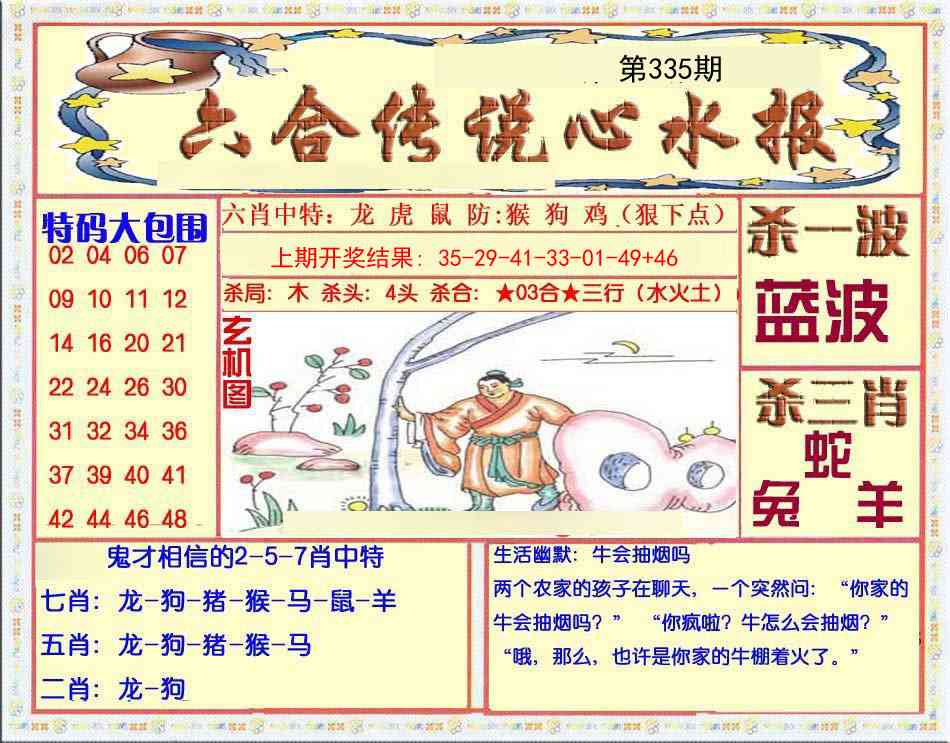 第335期
六合传说心水报
特码大包围
02 04 06 07
09 10 11 12
14 16 20 21
22 24 26 30
31 32 34 36
37 39 40 41
42 44 46 48
六肖中特：龙 虎 鼠 防:猴 狗 鸡（狠下点）
上期开奖结果：35-29-41-33-01-49+46
杀局：木 杀头：4头 杀合：★03合★三行（水火土）
玄机图
杀一波
蓝波
杀三肖
蛇
兔 羊
鬼才相信的2-5-7肖中特
七肖：龙-狗-猪-猴-马-鼠-羊
五肖：龙-狗-猪-猴-马
二肖：龙-狗
生活幽默：牛会抽烟吗
两个农家的孩子在聊天，一个突然问：“你家的
牛会抽烟吗？”“你疯啦？牛怎么会抽烟？”
“哦，那么，也许是你家的牛棚着火了。”